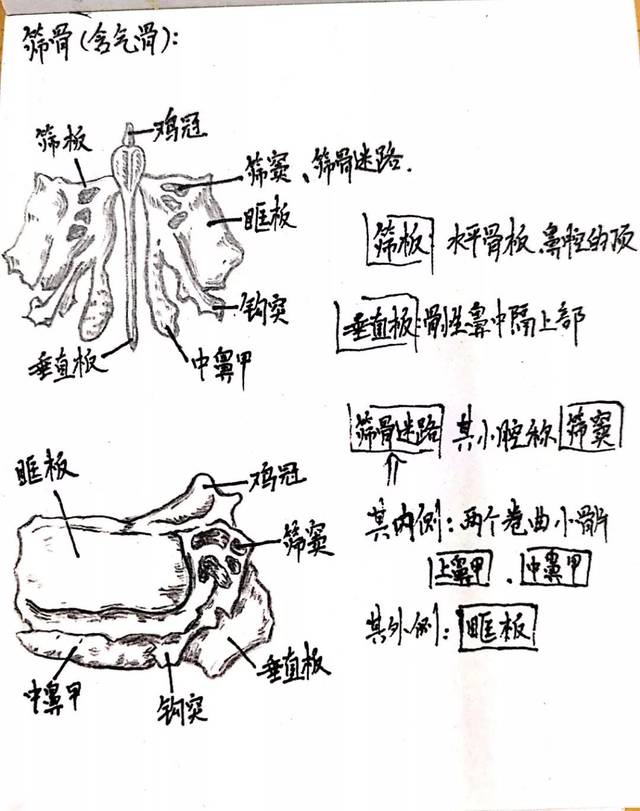 筛骨(含气骨):
鸡冠
筛板
筛窦、筛骨迷路.
眶板
筛板: 水平骨板、鼻腔的顶
钩突
垂直板:骨性鼻中隔上部
垂直板
中鼻甲
筛骨迷路 其小腔称 筛窦
眶板
鸡冠
筛窦
其内侧:两个卷曲小骨片
上鼻甲、中鼻甲
其外侧:眶板
垂直板
中鼻甲
钩突